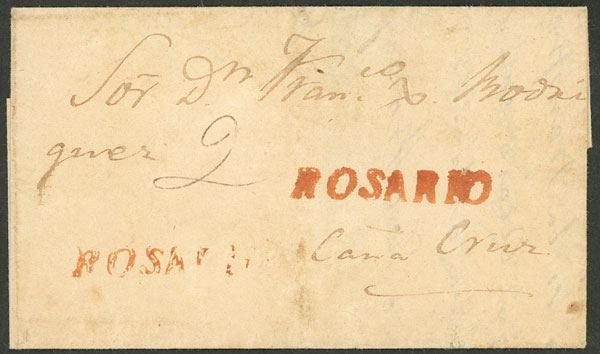 Sōr Dn Franco. Rodri
guez 2
ROSARIO
ROSARI
Caña Cruz